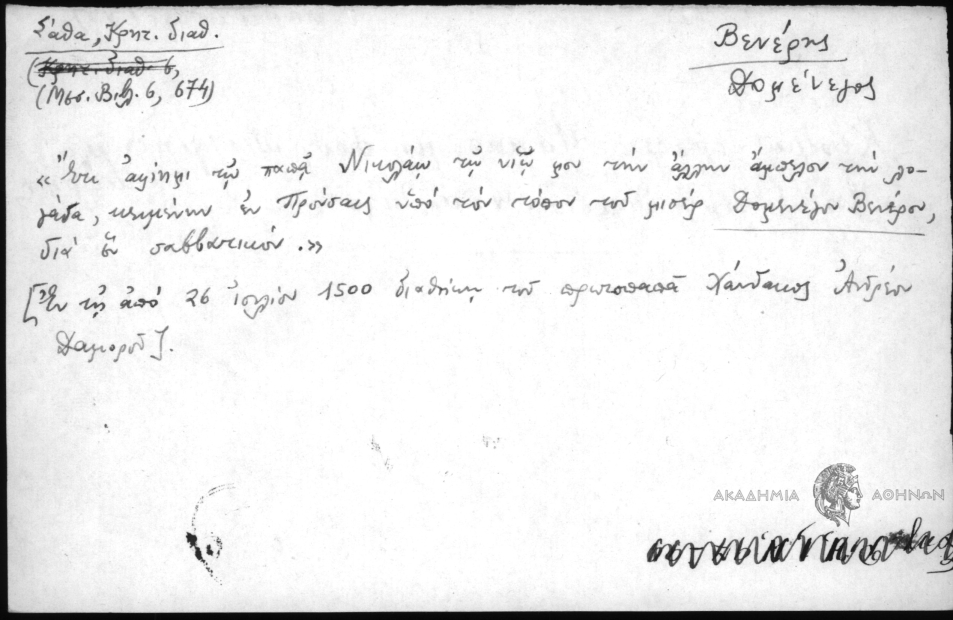 Σάθα, Κρητ. διαθ.
(Κρητ. διαθ. 6,
(Μεσ. Βιβλ. 6, 674)
Βενέρης
Δομένεγος
«Ἔτι ἀφίημι τῷ παπᾷ Νικολάῳ τῷ υἱῷ μου τὴν ἄλλην ἄμπελον τὴν λο-
γάδα, κειμένην ἐν Προύσαις ὑπὸ τὸν τόπον τοῦ μισέρ Δομενέγου Βενέρου,
διὰ ἓν σαββατικόν.»
[Ἐν τῇ ἀπό 26 ἰουλίου 1500 διαθήκῃ τοῦ πρωτοπαπᾶ Χάνδακος Ἀνδρέου
Δαμοροῦ].
ΑΚΑΔΗΜΙΑ ΑΘΗΝΩΝ